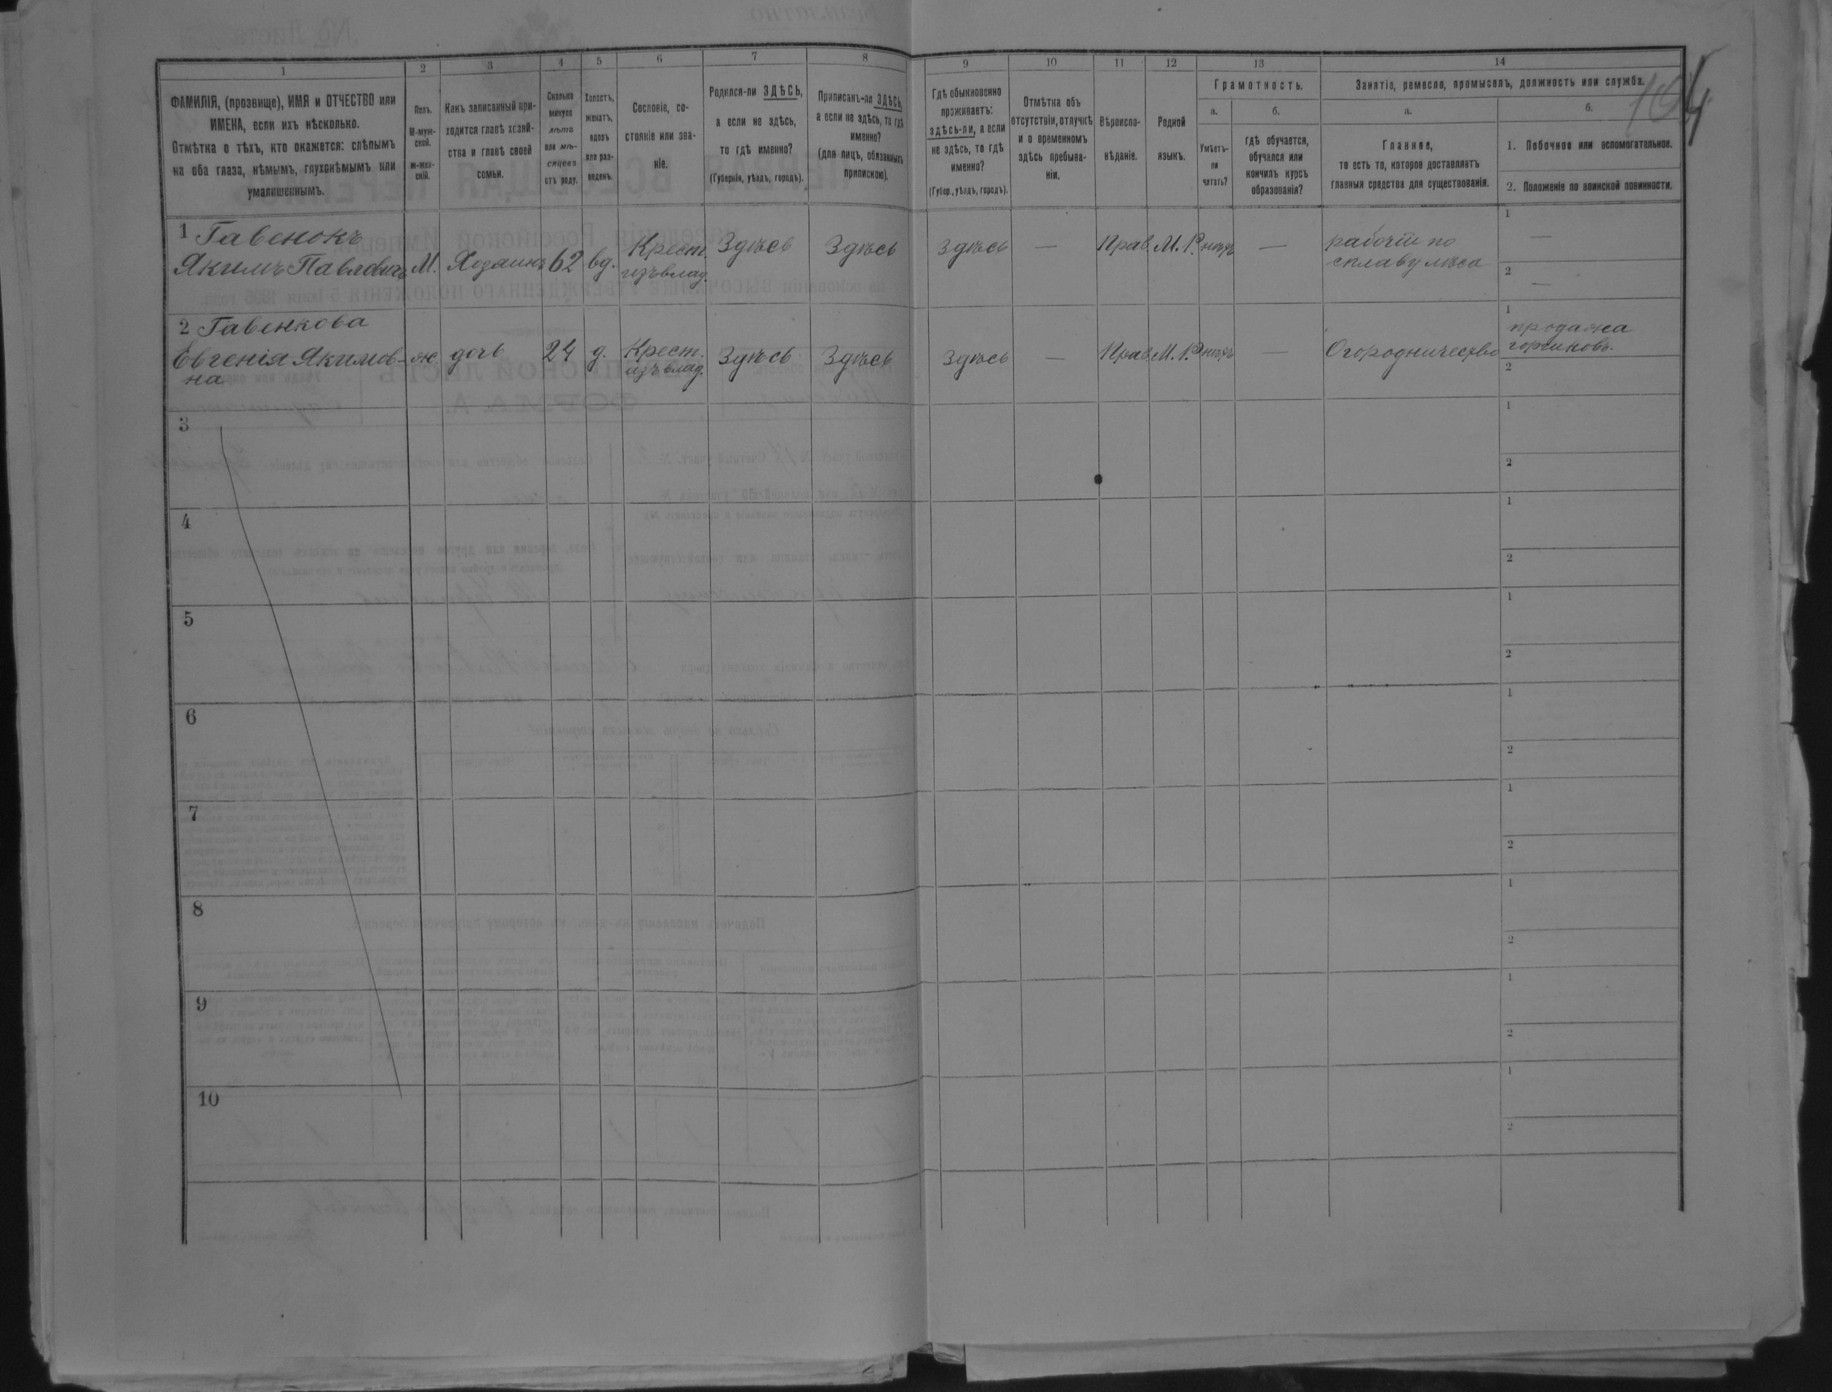 104
1 2 3 4 5 6 7 8 9 10 11 12 13 14
ФАМИЛІЯ, (прозвище), ИМЯ и ОТЧЕСТВО или
ИМЕНА, если ихъ нѣсколько.
Отмѣтка о тѣхъ, кто окажется: слѣпымъ
на оба глаза, нѣмымъ, глухонѣмымъ или
умалишеннымъ.
Полъ.
М-муж-
ской.
Ж-жен-
скій.
Какъ записанный при-
ходится главѣ хозяй-
ства и главѣ своей
семьи.
Сколько
минуло
лѣтъ
или мѣ-
сяцевъ
отъ роду.
Холостъ,
женатъ,
вдовъ
или раз-
веденъ.
Сословіе, со-
стояніе или зва-
ніе.
Родился-ли ЗДѢСЬ,
а если не здѣсь,
то гдѣ именно?
(Губернія, уѣздъ, городъ).
Приписанъ-ли ЗДѢСЬ,
а если не здѣсь, то гдѣ
именно?
(для лицъ, обязанныхъ
припискою).
Гдѣ обыкновенно
проживаетъ:
здѣсь-ли, а если
не здѣсь, то гдѣ
именно?
(Губер., уѣздъ, городъ).
Отмѣтка объ
отсутствіи, отлучкѣ
и о временномъ
здѣсь пребыва-
ніи.
Вѣроиспо-
вѣданіе.
Родной
языкъ.
Грамотность.
а.
Умѣетъ-
ли
читать?
б.
гдѣ обучается,
обучался или
кончилъ курсъ
образованія?
Занятіе, ремесло, промыселъ, должность или служба.
а.
Главное,
то есть то, которое доставляетъ
главныя средства для существованія.
б.
1. Побочное или вспомогательное.
2. Положеніе по воинской повинности.
1 Гавенокъ
Якимъ Павловичъ М. Хозяинъ 62 вд. Крест. изъ влад. Здѣсь Здѣсь Здѣсь — Прав. М. Р. нѣтъ — рабочій по
сплаву лѣса
1 —
2 —
2 Гавенкова
Евгенія Якимов-
на ж. дочь 24 д. Крест. изъ влад. Здѣсь Здѣсь Здѣсь — Прав. М. Р. нѣтъ — Огородничество
1 продажа
горшковъ.
2
3 1
2
4 1
2
5 1
2
6 1
2
7 1
2
8 1
2
9 1
2
10 1
2